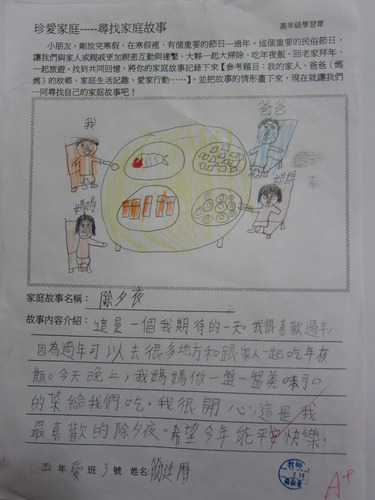 珍愛家庭-----尋找家庭故事
高年級學習單
小朋友，剛放完寒假，在寒假裡，有個重要的節日---過年。這個重要的民俗節日，
讓我們與家人或親戚更加親密互動與連繫，大夥一起大掃除、吃年夜飯、回老家拜年、
一起旅遊。找到共同回憶，將你的家庭故事記錄下來【參考題目：我的家人、爸爸（媽
媽）的故鄉、家庭生活記趣、愛家行動……】，並把故事的情形畫下來，現在就讓我們
一同尋找自己的家庭故事吧！
爸爸
我
媽媽
家庭故事名稱：除夕夜
故事內容介紹：這是一個我期待的一天。我很喜歡過年，
因為過年可以去很多地方和跟家人一起吃年夜
飯。今天晚上，我媽媽做一盤一盤美味可口
的菜給我們吃。我很開心，這是我
最喜歡的除夕夜。希望今年能平安快樂。
五年愛班3號 姓名：簡
教師
A+